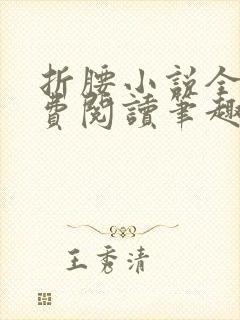 折腰小说全
費閱讀筆趣
王秀清